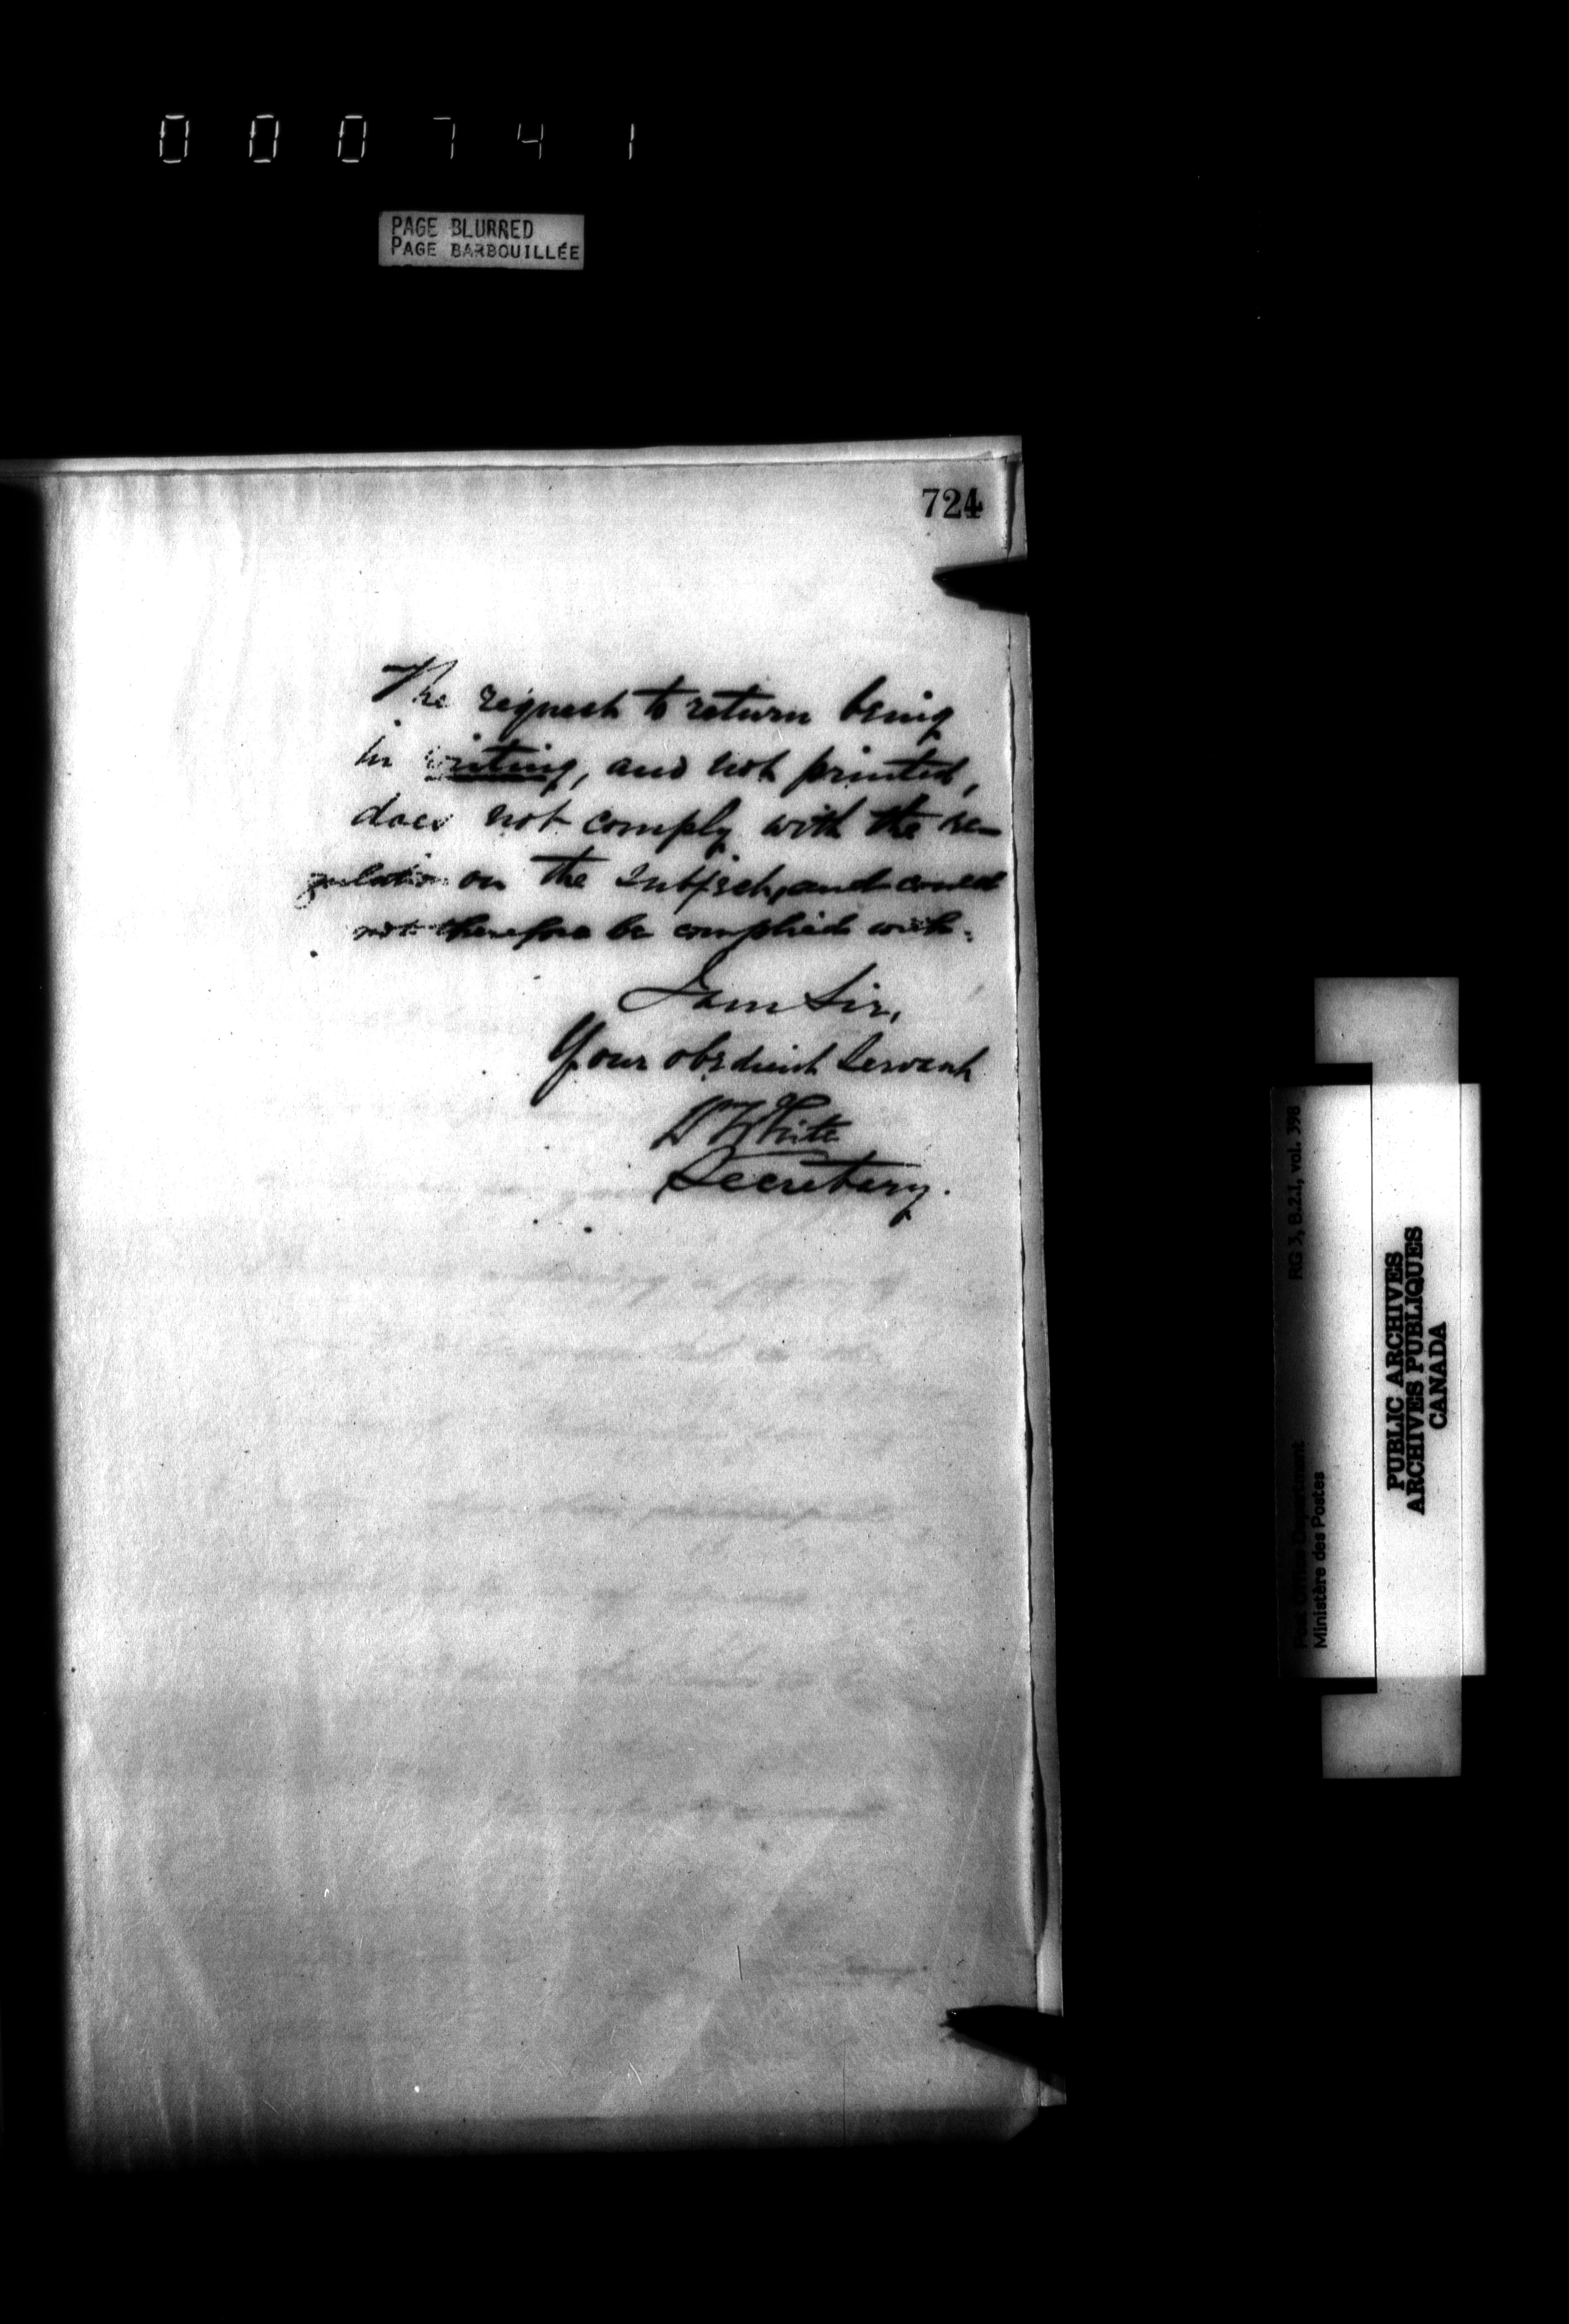 000741
PAGE BLURRED
PAGE BARBOUILLÉE
724
The request to return being
in writing, and not printed,
does not comply with the re-
gulation on the subject, and could
not therefore be complied with.
I am Sir,
Your obedient Servant
W White
Secretary.
RG 3, B.2.1, vol. 398
Post Office Department
Ministère des Postes
PUBLIC ARCHIVES
ARCHIVES PUBLIQUES
CANADA